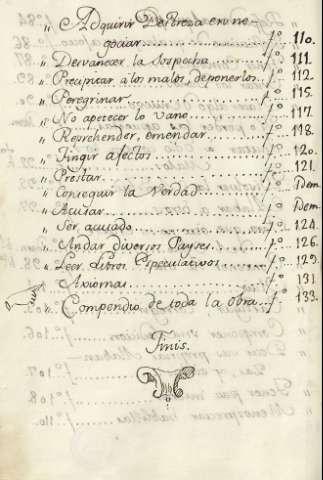 " Adquirir Destreza en ne-
gociar........fº. 110.
" Desvanecer la sospecha....fº. 111.
" Precipitar a los malos, deponerlos..fº. 112.
" Peregrinar........fº. 115.
" No apetecer lo vano........fº. 117.
" Reprehender, emendar........fº. 118.
" Fingir afectos........fº. 120.
" Prestar........fº. 121.
" Conseguir la Verdad........fº. Dem.
" Acusar........fº. Dem.
" Ser acusado........fº. 124.
" Andar diversos Payses...fº. 126.
" Leer Libros Especulativos....fº. 129.
" Axiomas........fº. 131.
" Compendio de toda la obra...fº. 133.
Finis.